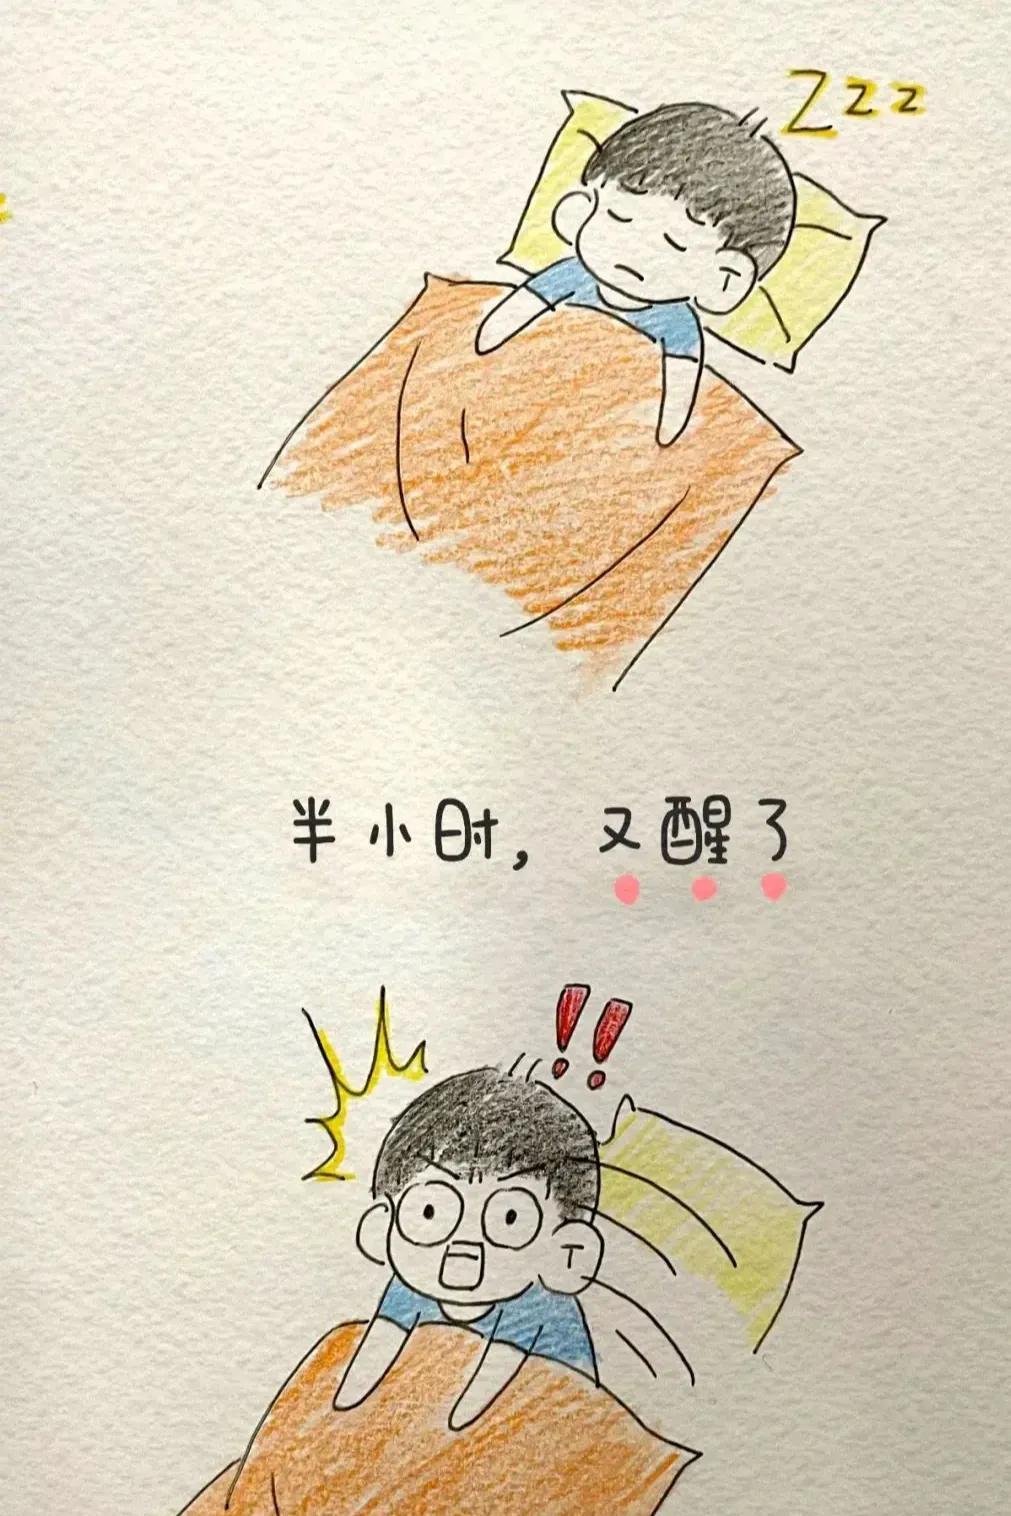 Zzz
半小时，又醒了
!!